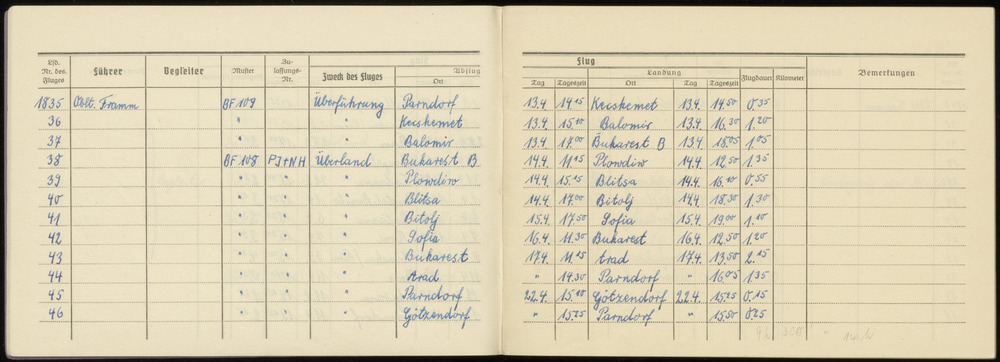 Flug
Lfd. Nr. des Fluges Führer Begleiter Muster Zulassungs-Nr. Zweck des Fluges Abflug Ort Tag Tageszeit Landung Ort Tag Tageszeit Flugdauer Kilometer Bemerkungen
1835 Oblt. Framm BF 109 Überführung Parndorf 13.4. 14¹⁵ Kecskemet 13.4. 14⁵⁰ 0.35
36 " " Kecskemet 13.4. 15¹⁰ Balomir 13.4. 16.³⁰ 1.²⁰
37 " " Balomir 13.4 17⁰⁰ Bukarest B 13.4. 18⁰⁵ 1.⁰⁵
38 BF 108 PJ+NH Überland Bukarest B 14.4. 11.¹⁵ Plowdiw 14.4. 12.⁵⁰ 1.³⁵
39 " " " Plowdiw 14.4. 15.¹⁵ Blitsa 14.4. 16.¹⁰ 0.⁵⁵
40 " " " Blitsa 14.4. 17.⁰⁰ Bitolj 14.4. 18.³⁰ 1.³⁰
41 " " " Bitolj 15.4. 17⁵⁰ Sofia 15.4. 19⁰⁰ 1.¹⁰
42 " " " Sofia 16.4. 11.³⁰ Bukarest 16.4. 12.⁵⁰ 1.²⁰
43 " " " Bukarest 17.4. 11.¹⁵ Arad 17.4. 13.⁵⁰ 2.¹⁵
44 " " " Arad " 14.³⁰ Parndorf " 16.⁰⁵ 1.³⁵
45 " " " Parndorf 22.4. 15.¹⁰ Götzendorf 22.4. 15.²⁵ 0.¹⁵
46 " " " Götzendorf " 15.²⁵ Parndorf " 15.⁵⁰ 0.²⁵